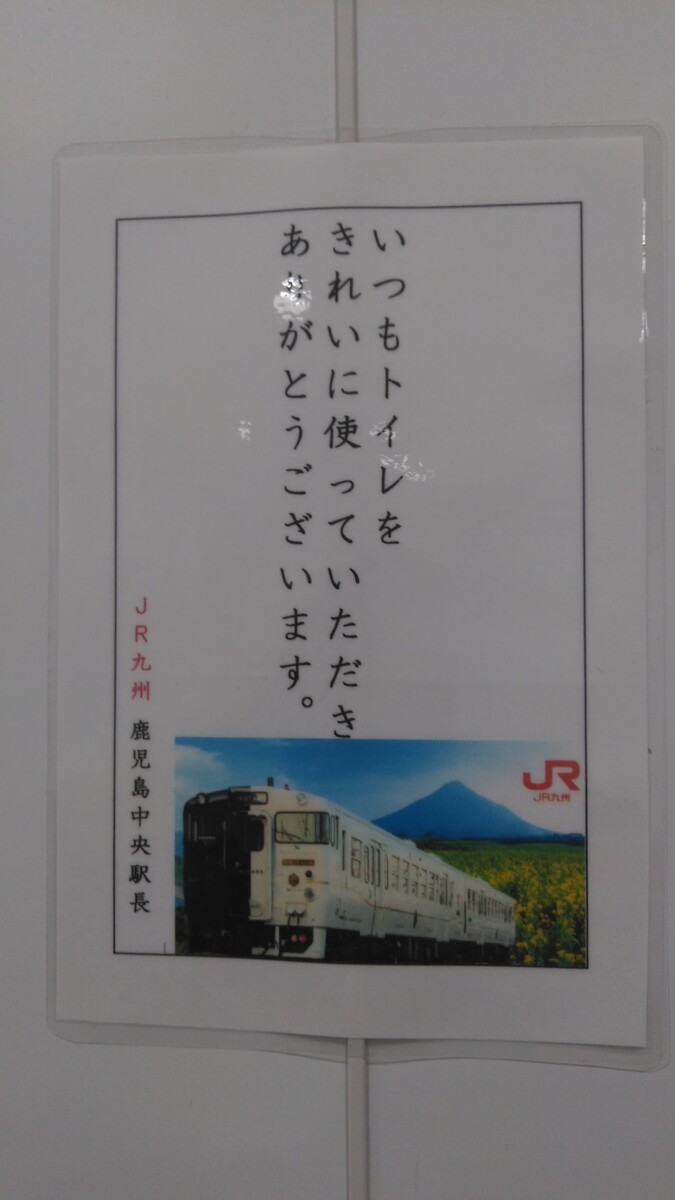 いつもトイレを
きれいに使っていただき
ありがとうございます。
JR九州 鹿児島中央駅長
JR
JR九州